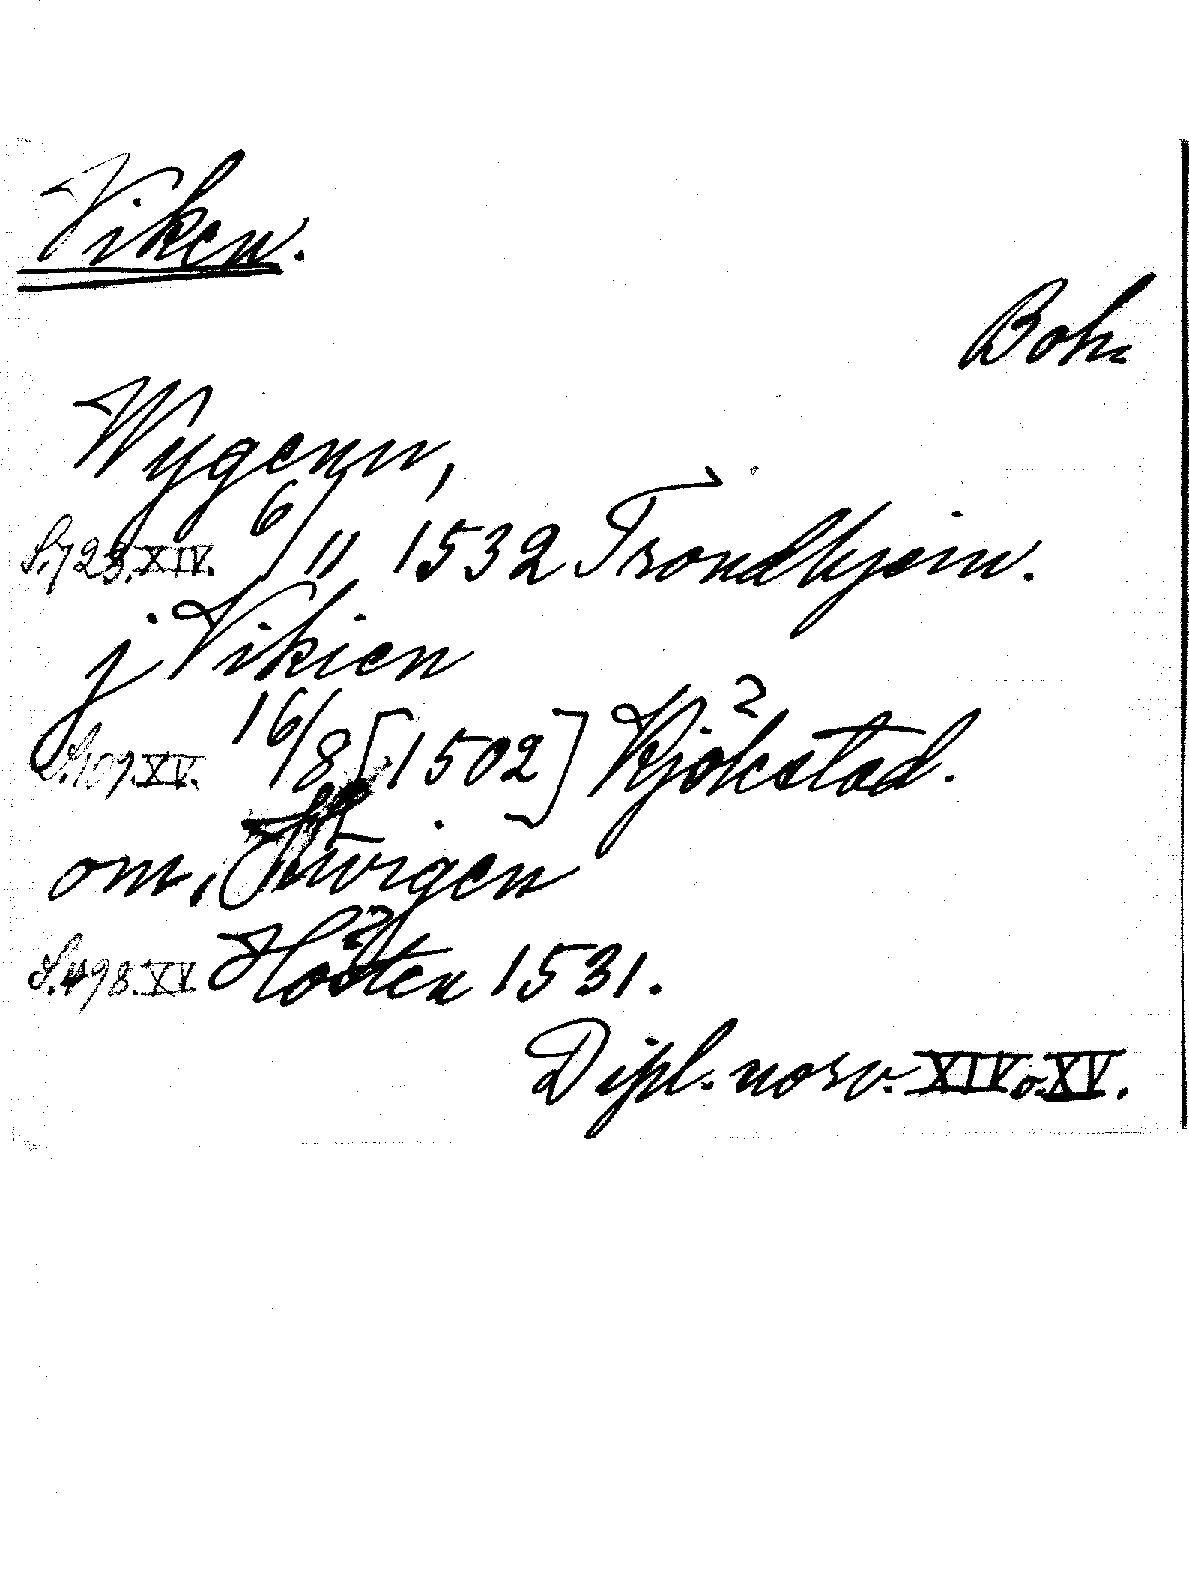 Viken.
Boh.
Wygenn,
S. 723. XIV. 6/11 1532 Trondhjem.
j Vikien
S. 109. XV. 16/8 [1502] Kjökstad.
om
S. 498. XV. Hösten 1531.
Dipl. norv. XIV o. XV.